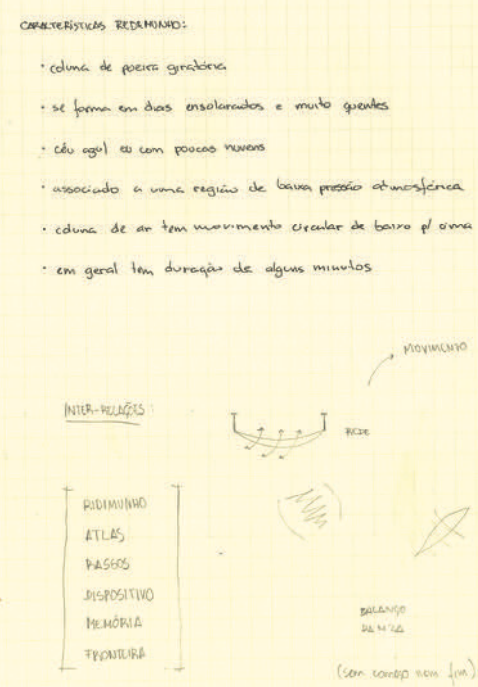 CARACTERÍSTICAS REDEMUNHO:
• coluna de poeira giratória
• se forma em dias ensolarados e muito quentes
• céu azul ou com poucas nuvens
• associado a uma região de baixa pressão atmosférica
• coluna de ar tem movimento circular de baixo p/ cima
• em geral tem duração de alguns minutos
MOVIMENTO
INTER-RELAÇÕES:
REDE
RIDIMUNHO
ATLAS
RASGOS
DISPOSITIVO
MEMÓRIA
FRONTEIRA
BALANÇO
DANÇA
(sem começo nem fim)